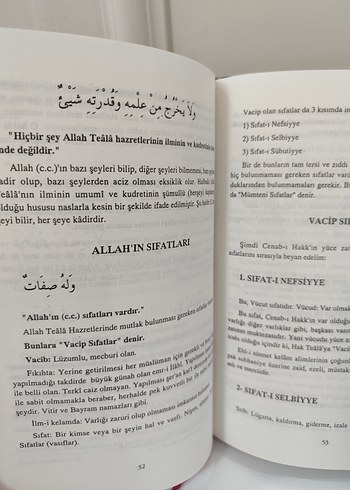 وَلَا يَخْرُجُ مِنْ عِلْمِهِ وَقُدْرَتِهِ شَيْئٌ
"Hiçbir şey Allah Teâlâ hazretlerinin ilminin ve kudretinin
nde değildir."
Allah (c.c.)ın bazı şeyleri bilip, diğer şeyleri bilmemesi,
adir olup, bazı şeylerden aciz olması eksiklik olur. Halbuki
Teâlâ'nın ilminin umumî ve kudretinin şümullü (herşeyi
olduğu hususu naslarla kesin bir şekilde ifade edilmiştir.
şeyi bilir, her şeye kâdirdir.
ALLAH'IN SIFATLARI
وَلَهُ صِفَاتٌ
"Allah'ın (c.c.) sıfatları vardır."
Allah Teâlâ Hazretlerinde mutlak bulunması gereken sıfatlar
Bunlara "Vacip Sıfatlar" denir.
Vacib: Lüzumlu, mecburi olan.
Fıkıhta: Yerine getirilmesi her müslüman için gerekli ve
yapılmadığı takdirde büyük günah olan emr-i İlahî. Yapılması
ile belli olan. Terki caiz olmayan. Yapılması şer'an kat'i
ile sabit olmamakla beraber, herhalde pek kuvvetli bir
şeydir. Vitir ve Bayram namazları gibi.
İlm-i kelamda: Varlığı zaruri olup olmaması imkansız
Sıfat: Bir kimse veya bir şeyin hal ve vasfı.
Sıfatlar (vasıflar).
52
Vacip olan sıfatlar da 3 kısımda
1) Sıfat-ı Nefsiyye
2) Sıfat-ı Selbiyye
3) Sıfat-ı Sübutiyye
Bir de bunların tam tersi ve zıddı
hiç bulunmaması gereken sıfatlar vardır
duklarından bulunmamaları gerekir. B
da "Mümteni Sıfatlar" denir.
VACİP
Şimdi Cenab-ı Hakk'ın yüce
sıfatlarını sırasıyla beyan edelim:
1. SIFAT-I NEFSİYYE
Bu, Vücut sıfatıdır. Vücud: Var olmak
Bu sıfat, Cenab-ı Hakk'ın var olduğu
varlığı diğer varlıklar gibi, başkası
zatının muktezasıdır. Yani vücuda yüce zatının
icabıdır. Çünkü iyice bil ki, Hak Teâlâ'ya "Vacib
Ehl-i sünnet kelâm alimlerinin çoğunluğu
pek sübhaniye üzerine zaid, ezelî,
2- SIFAT-I SELBİYYE
Selb: Lügatta, kaldırma, giderme, izale
53